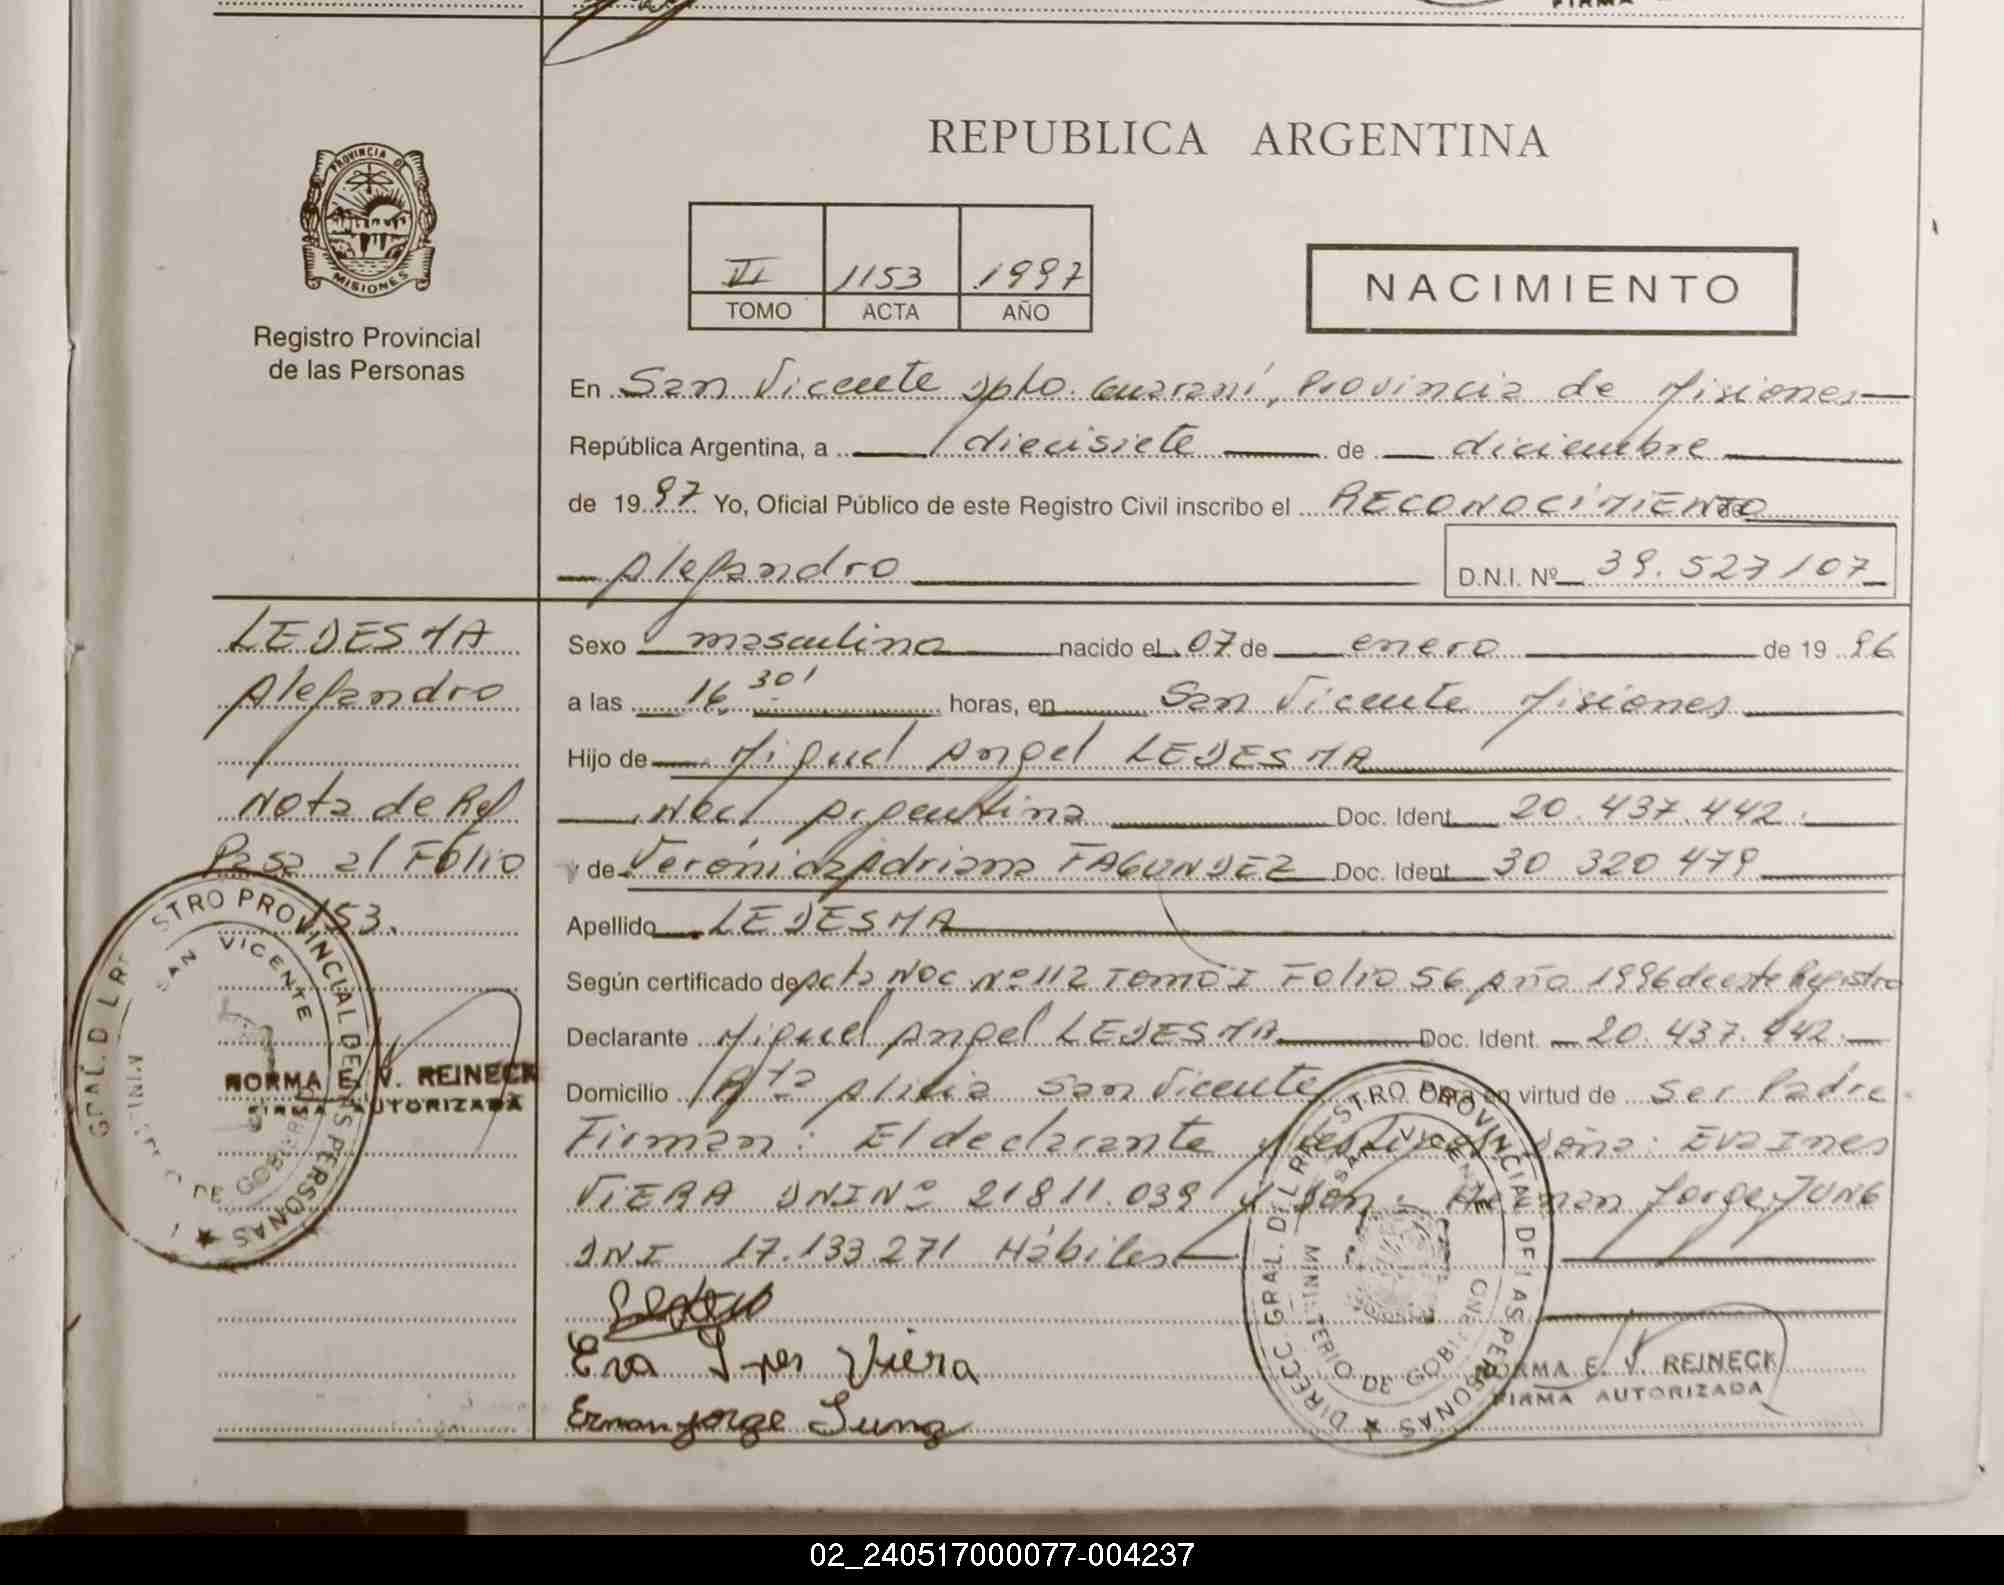 FIRMA
REPUBLICA ARGENTINA
PROVINCIA D
MISIONES
Registro Provincial
de las Personas
VI 1153 1997
TOMO ACTA AÑO
NACIMIENTO
En San Vicente Dpto. Guaraní, Provincia de Misiones
República Argentina, a diecisiete de diciembre
de 1997 Yo, Oficial Público de este Registro Civil inscribo el RECONOCIMIENTO de
Alejandro D.N.I. Nº 39.527107
LEDESMA
Alejandro
Nota de Ref
Pasa al Folio
153.
Sexo masculino nacido el 07 de enero de 1996
a las 16 30' horas, en San Vicente Misiones
Hijo de Miguel Angel LEDESMA
Nac Argentina Doc. Ident. 20.437.442.
y de Verónica Adriana FAGUNDEZ Doc. Ident. 30 320 479
Apellido LEDESMA
Según certificado de Acta Nac Nº 112 Tomo I Folio 56 Año 1996 de este Registro
Declarante Miguel Angel LEDESMA Doc. Ident. 20.437.442.
Domicilio Alicia San Vicente Obra en virtud de ser Padre
Firman: El declarante y testigos Doña: Eva Ines
VIERA DNI Nº 21811.039 y Don: Herman Jorge JUNG
DNI 17.133.271 Hábiles
Eva Ines Viera
Ernan Jorge Jung
STRO PROVINCIAL DE LAS PERSONAS
SAN VICENTE
DE GOBIER
NORMA E. V. REINECK
FIRMA AUTORIZADA
DIRECC. GRAL. DEL REGISTRO PROVINCIAL DE LAS PERSONAS
SAN VICENTE
MINISTERIO DE GOBIERNO
NORMA E. V. REINECK
FIRMA AUTORIZADA
02_240517000077-004237